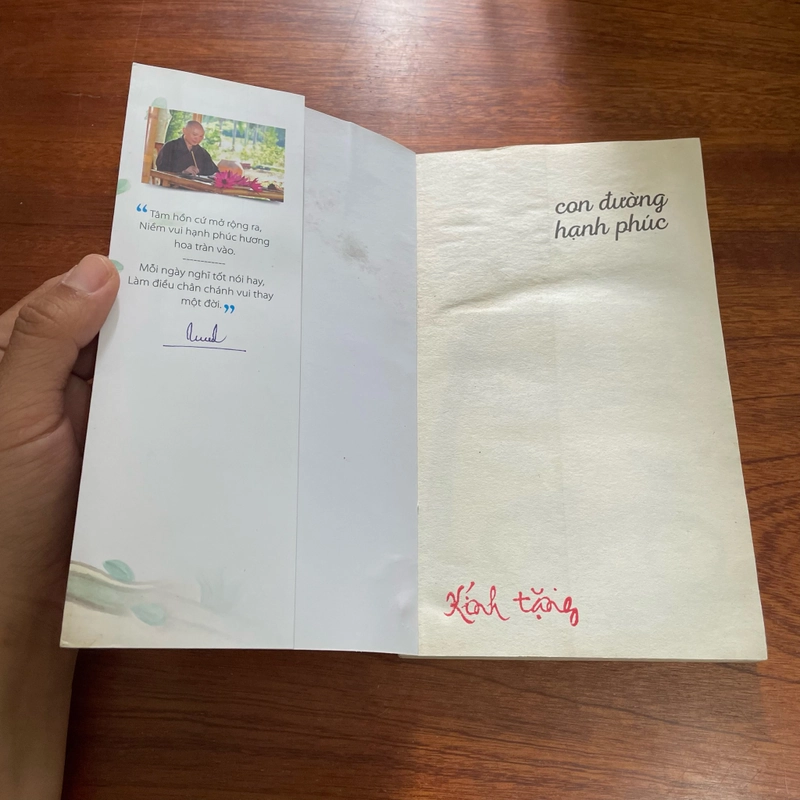 “Tâm hồn cứ mở rộng ra,
Niềm vui hạnh phúc hương
hoa tràn vào.
Mỗi ngày nghĩ tốt nói hay,
Làm điều chân chánh vui thay
một đời.”
con đường
hạnh phúc
Kính tặng